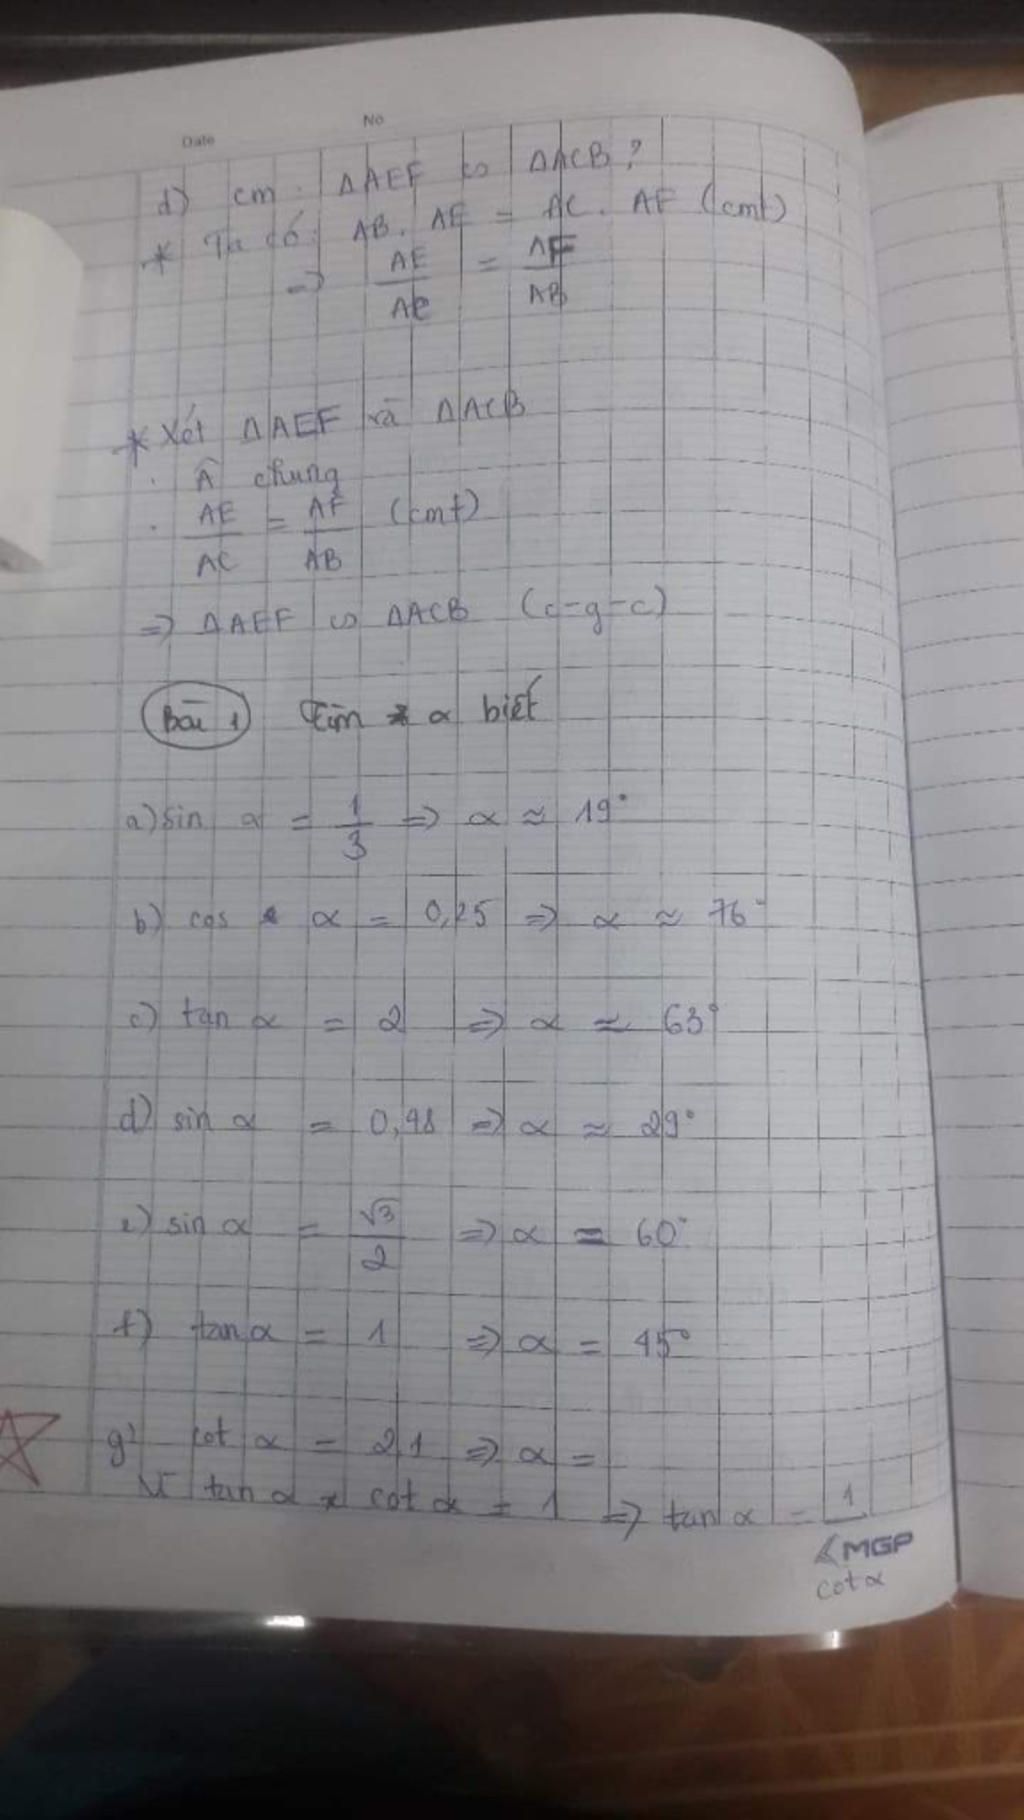 Date
No
d) cm : ΔAEF ∽ ΔACB ?
* Ta có : AB . AE = AC . AF (cmt)
=> AE/AC = AF/AB
* Xét ΔAEF và ΔACB
. Â chung
. AE/AC = AF/AB (cmt)
=> ΔAEF ∽ ΔACB (c-g-c)
Bài 1 Tìm α biết
a) sin α = 1/3 => α ≈ 19°
b) cos α = 0,25 => α ≈ 76°
c) tan α = 2 => α ≈ 63°
d) sin α = 0,48 => α ≈ 29°
e) sin α = √3/2 => α = 60°
f) tan α = 1 => α = 45°
g) cot α = 2,1 => α =
Vì tan α × cot α = 1 => tan α = 1/cot α
MGP